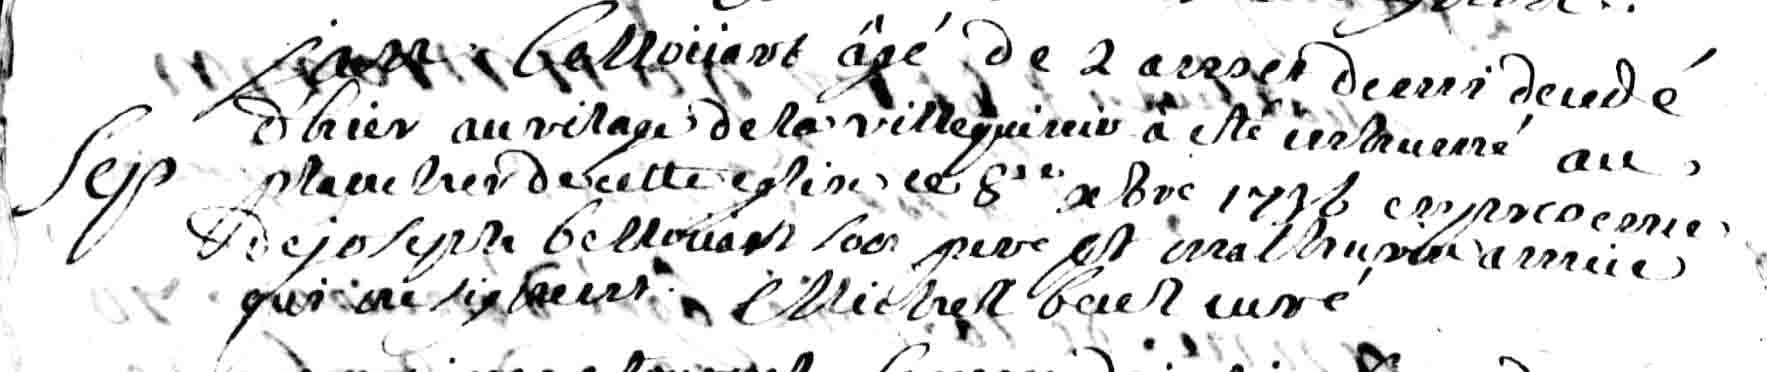 jean bellouard âgé de 2 ans et demi decedé
d'hier au vilage de la ville quinio a eté inhumé au
Sep placitre de cette eglise ce 8me xbre 1736 en presence
De joseph bellouard son pere et mathurin
qui ne signent. Michel curé